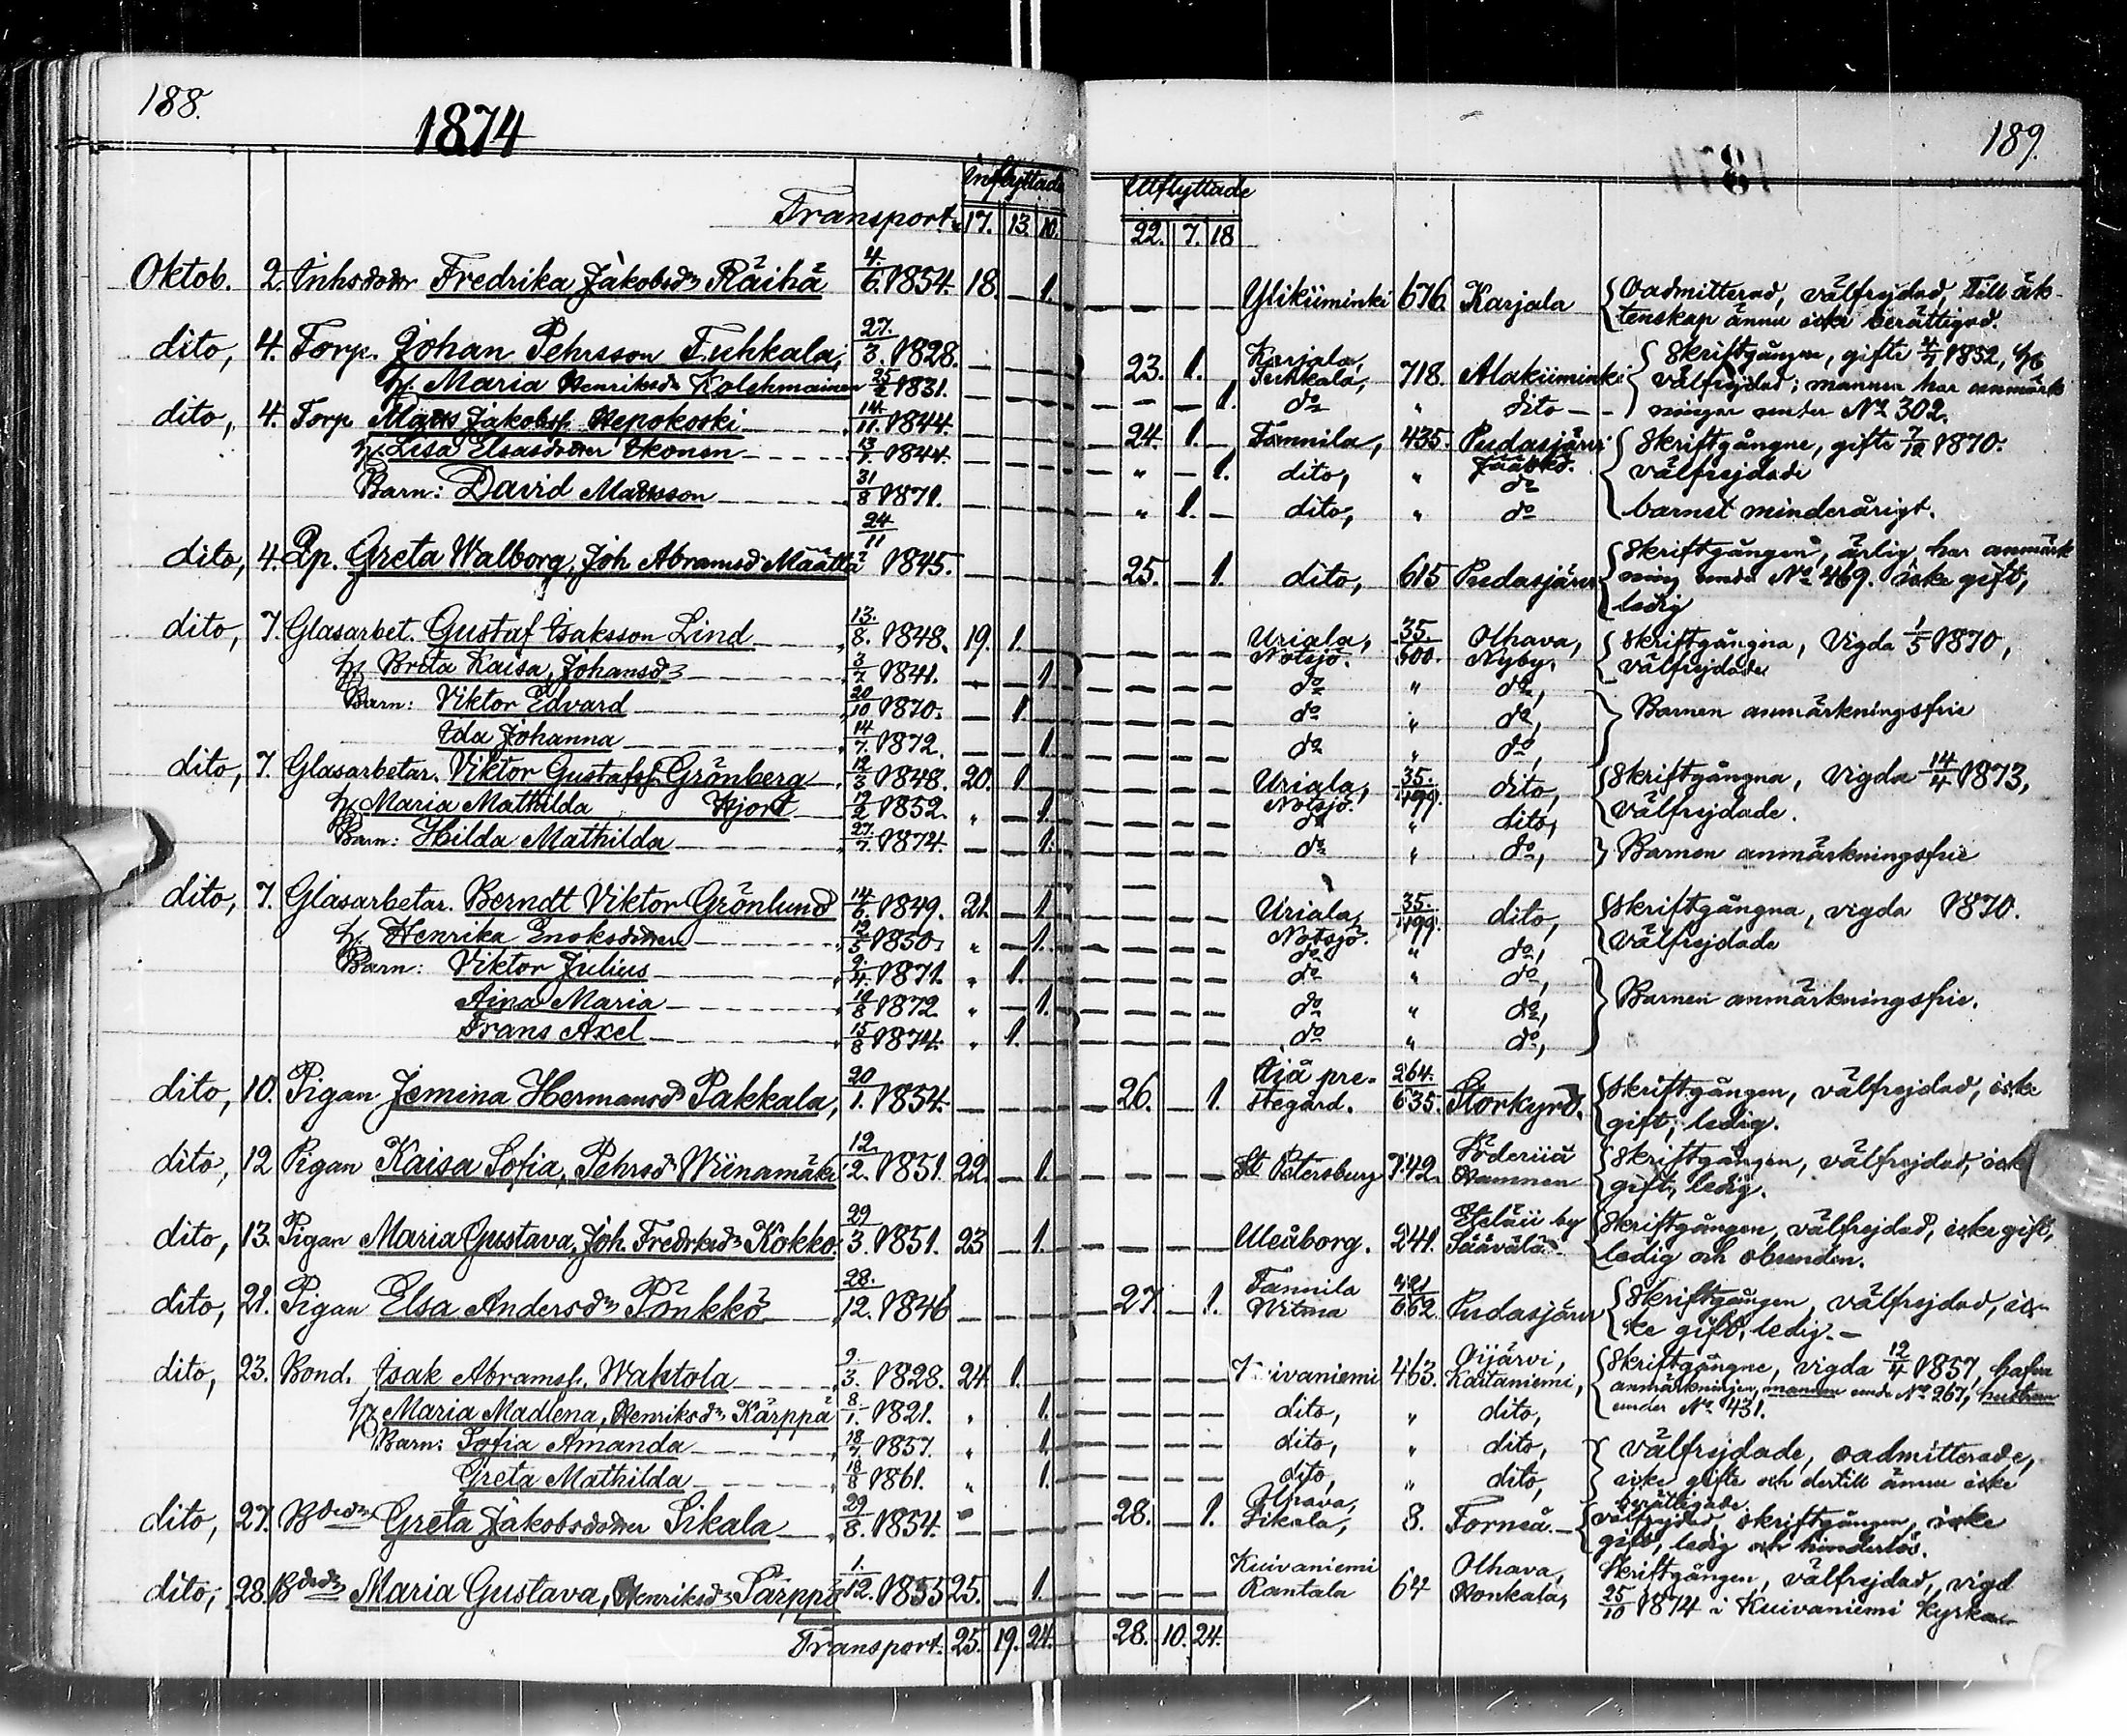 188.
1874
189.
Inflyttade
Utflyttade
Transport. 17. 13. 10. 22. 7. 18
Oktob. 2. Inhsdotter Fredrika Jakobsdr Räihä 4/6. 1854. 18. — 1. — — — Ylikiiminki 676. Karjala Oadmitterad, välfrejdad, till äk-
tenskap ännu icke berättigad.
dito, 4. Torp. Johan Pehrsson Tuhkala, 27./3. 1828. — — — 23. 1. — Karjala, Tuhkala, 718. Alakiiminki Skriftgångne, gifte 4/7 1852,
h. Maria Henriksdr Kolehmainen 25/2 1831. — — — — — 1. do " dito — välfrejdad; mannen har anmärk
ningar under No 302.
dito, 4. Torp Matts Jakobss. Hepokoski 14./11. 1844. — — — 24. 1. — Tannila, 435. Pudasjärvi Skriftgångne, gifte 7/12 1870.
h. Lisa Elsasdotter Ikonen 13/7 1844. — — — " — 1. dito, " Jääskö. do välfrejdade
Barn: David Mattsson 31/8 1871. — — — " 1. — dito, " do barnet minderårigt.
dito, 4. Pp. Greta Walborg, Joh Abramsdr Määttä 24/11 1845. — — — 25. — 1. dito, 615 Pudasjärvi Skriftgången, ärlig, har anmärk
ning under No 469. icke gift,
ledig
dito, 7. Glasarbet. Gustaf Isaksson Lind 13./8. 1848. 19. 1. — — — — Urjala, Notsjö. 35./500. Olhava, Nyby. Skriftgångna, Vigda 1/5 1870,
h. Brita Kaisa, Johansdr 3/7 1841. — — 1 — — — do " do, välfrejdade
Barn: Viktor Edvard 20/10 1870. — 1. — — — do " do, Barnen anmärkningsfrie
Ida Johanna 14/7. 1872. — — 1. — — — do " do,
dito, 7. Glasarbetar. Viktor Gustafss. Grönberg 12/3 1848. 20. 1 — — — Urjala, Notsjö. 35./199. dito, Skriftgångna, Vigda 14/4 1873,
h. Maria Mathilda Hjort 19/2 1852. " — 1. — — — do " dito, välfrejdade.
Barn: Hilda Mathilda 27./7. 1874. — — 1. — — — do " do, Barnen anmärkningsfrie
dito, 7. Glasarbetar. Berndt Viktor Grönlund 14/6. 1849. 21. — 1. — — — Urjala, Notsjö. 35./199. dito, Skriftgångna, vigda 1870.
h. Henrika Enoksdotter 12/5 1850. " — 1. — — — do " do, välfrejdade
Barn: Viktor Julius 9./4. 1871. " 1. — — — do " do, Barnen anmärkningsfrie.
Aina Maria 19/8 1872. " — 1. — — — do " do,
Frans Axel 15/8 1874. " 1. — — — do " do,
dito, 10. Pigan Jemina Hermansdr Pakkala, 20/1. 1854. — — — 26. — 1. Ijä pre-stegård. 264./635. Storkyrö. Skriftgången, välfrejdad, icke
gift, ledig.
dito, 12 Pigan Kaisa Sofia, Pehrsdr Wiinamäki 12./12. 1851. 22. — 1. — — — St Petersburg 742. Hamnen Skriftgången, välfrejdad, icke
gift, ledig.
dito, 13. Pigan Maria Gustava, Joh. Fredriksdr Kokko. 29/3. 1851. 23 — 1. — — — Uleåborg. 241. Säävälä. Skriftgången, välfrejdad, icke gift,
ledig och obunden.
dito, 21. Pigan Elsa Andersdr Pönkkö 28./12. 1846 — — — 27. — 1. Tannila 662. Pudasjärvi Skriftgången, välfrejdad, ic-
ke gift, ledig. —
dito, 23. Bond. Isak Abramss. Wahtola 9/3. 1828. 24. 1. — — — — Kuivaniemi 463. Oijärvi, Kaitaniemi, Skriftgångne, vigda 12/4 1857, hafva
anmärkningen, mannen under No 267, hustrun
under No 431.
h. Maria Madlena, Henriksdr Kärppä 8/1. 1821. " 1. — — — dito, " dito,
Barn: Sofia Amanda 18/7 1857. " 1. — — — dito, " dito, välfrejdade, oadmitterade,
Greta Mathilda 18/8 1861. " 1. — — — dito, " dito, icke gifte och dertill ännu icke
berättigade.
dito, 27. Bdedr Greta Jakobsdotter Sikala 29/8. 1854. — — — 28. — 1. Olhava, Sikala, 8. Torneå. — välfrejdad, skriftgången, icke
gift, ledig och hinderlös.
dito, 28. Bdedr Maria Gustava, Henriksdr Särppä 1./12. 1855 25. — 1. — — — Kuivaniemi Rantala 64 Olhava, Honkala, Skriftgången, välfrejdad, vigd
25/10 1874 i Kuivaniemi kyrka
Transport. 25. 19. 24. 28. 10. 24.